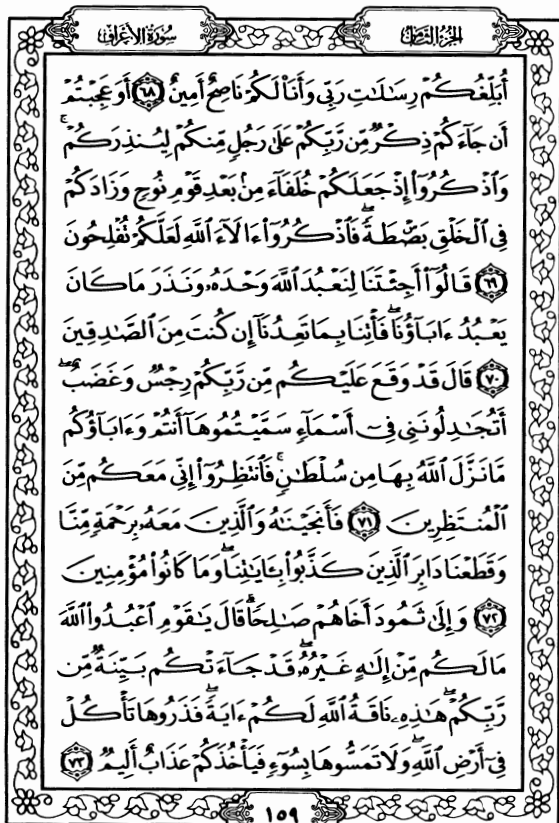 الجزء الثامن
سورة الأعراف
أُبَلِّغُكُمْ رِسَالَاتِ رَبِّي وَأَنَا۠ لَكُمْ نَاصِحٌ أَمِينٌ ۝٦٨ أَوَعَجِبْتُمْ
أَن جَآءَكُمْ ذِكْرٌ مِّن رَّبِّكُمْ عَلَىٰ رَجُلٍ مِّنكُمْ لِيُنذِرَكُمْ ۚ
وَٱذْكُرُوٓا۟ إِذْ جَعَلَكُمْ خُلَفَآءَ مِنۢ بَعْدِ قَوْمِ نُوحٍ وَزَادَكُمْ
فِى ٱلْخَلْقِ بَصْۜطَةً ۖ فَٱذْكُرُوٓا۟ ءَالَآءَ ٱللَّهِ لَعَلَّكُمْ تُفْلِحُونَ
۝٦٩ قَالُوٓا۟ أَجِئْتَنَا لِنَعْبُدَ ٱللَّهَ وَحْدَهُۥ وَنَذَرَ مَا كَانَ
يَعْبُدُ ءَابَآؤُنَا ۖ فَأْتِنَا بِمَا تَعِدُنَآ إِن كُنتَ مِنَ ٱلصَّـٰدِقِينَ
۝٧٠ قَالَ قَدْ وَقَعَ عَلَيْكُم مِّن رَّبِّكُمْ رِجْسٌ وَغَضَبٌ ۖ
أَتُجَـٰدِلُونَنِى فِىٓ أَسْمَآءٍ سَمَّيْتُمُوهَآ أَنتُمْ وَءَابَآؤُكُم
مَّا نَزَّلَ ٱللَّهُ بِهَا مِن سُلْطَـٰنٍ ۚ فَٱنتَظِرُوٓا۟ إِنِّى مَعَكُم مِّنَ
ٱلْمُنتَظِرِينَ ۝٧١ فَأَنجَيْنَـٰهُ وَٱلَّذِينَ مَعَهُۥ بِرَحْمَةٍ مِّنَّا
وَقَطَعْنَا دَابِرَ ٱلَّذِينَ كَذَّبُوا۟ بِـَٔايَـٰتِنَا ۖ وَمَا كَانُوا۟ مُؤْمِنِينَ
۝٧٢ وَإِلَىٰ ثَمُودَ أَخَاهُمْ صَـٰلِحًا ۗ قَالَ يَـٰقَوْمِ ٱعْبُدُوا۟ ٱللَّهَ
مَا لَكُم مِّنْ إِلَـٰهٍ غَيْرُهُۥ ۖ قَدْ جَآءَتْكُم بَيِّنَةٌ مِّن
رَّبِّكُمْ ۖ هَـٰذِهِۦ نَاقَةُ ٱللَّهِ لَكُمْ ءَايَةً ۖ فَذَرُوهَا تَأْكُلْ
فِىٓ أَرْضِ ٱللَّهِ ۖ وَلَا تَمَسُّوهَا بِسُوٓءٍ فَيَأْخُذَكُمْ عَذَابٌ أَلِيمٌ ۝٧٣
١٥٩